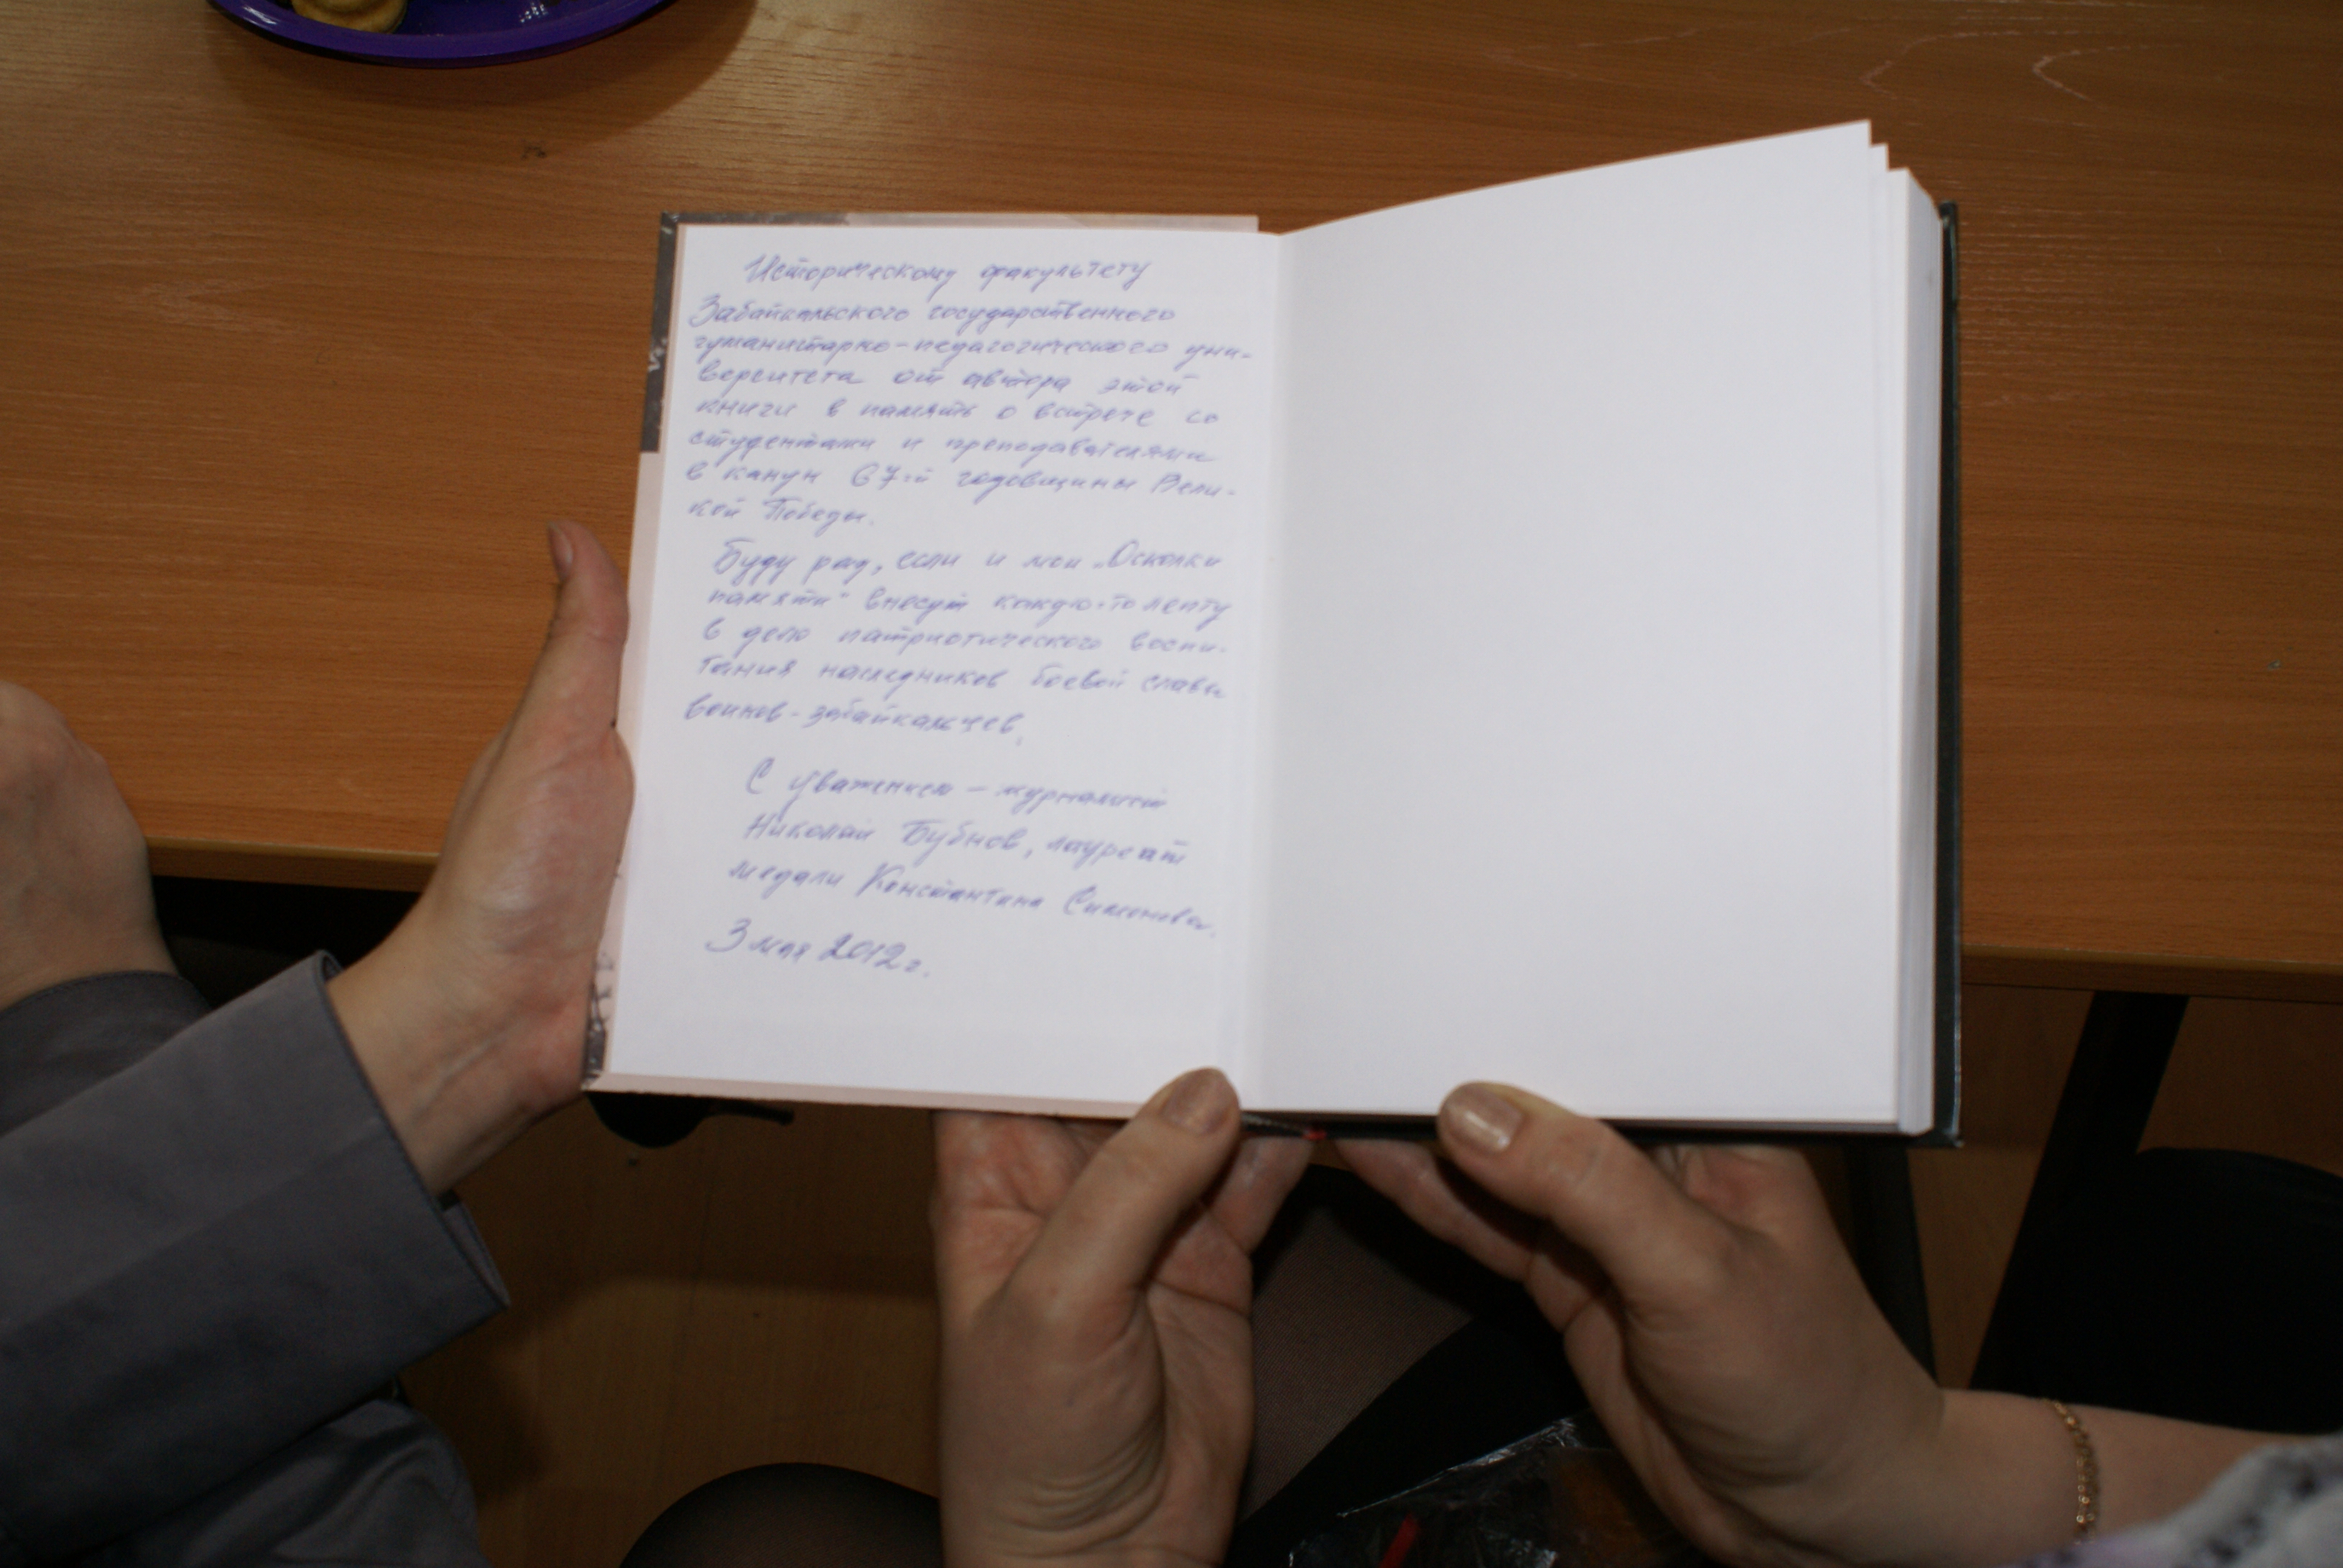 Историческому факультету
Забайкальского государственного
гуманитарно-педагогического уни-
верситета от автора этой
книги в память о встрече со
студентами и преподавателями
в канун 67-й годовщины Вели-
кой Победы.
Буду рад, если и мои „Осколки
памяти" внесут какую-то лепту
в дело патриотического воспи-
тания наследников боевой славы
воинов-забайкальцев.
С уважением – журналист
Николай Бубнов, лауреат
медали Константина Симонова.
3 мая 2012 г.